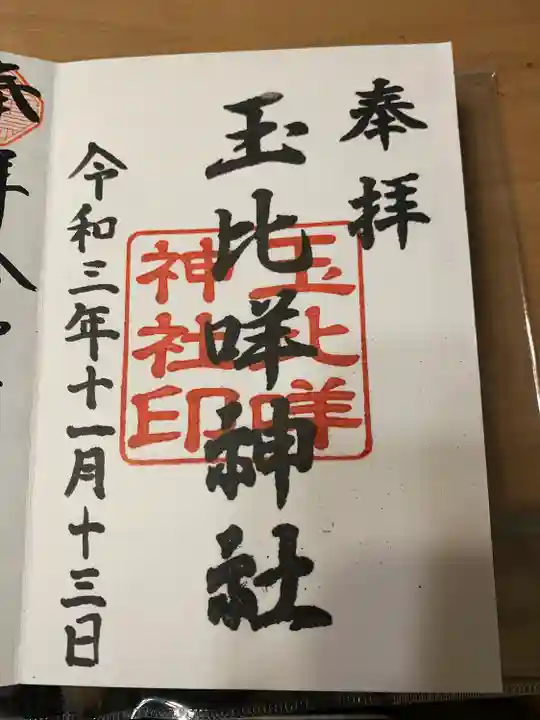 奉拝
玉比咩神社
玉比咩
神社印
令和三年十一月十三日
奉拝